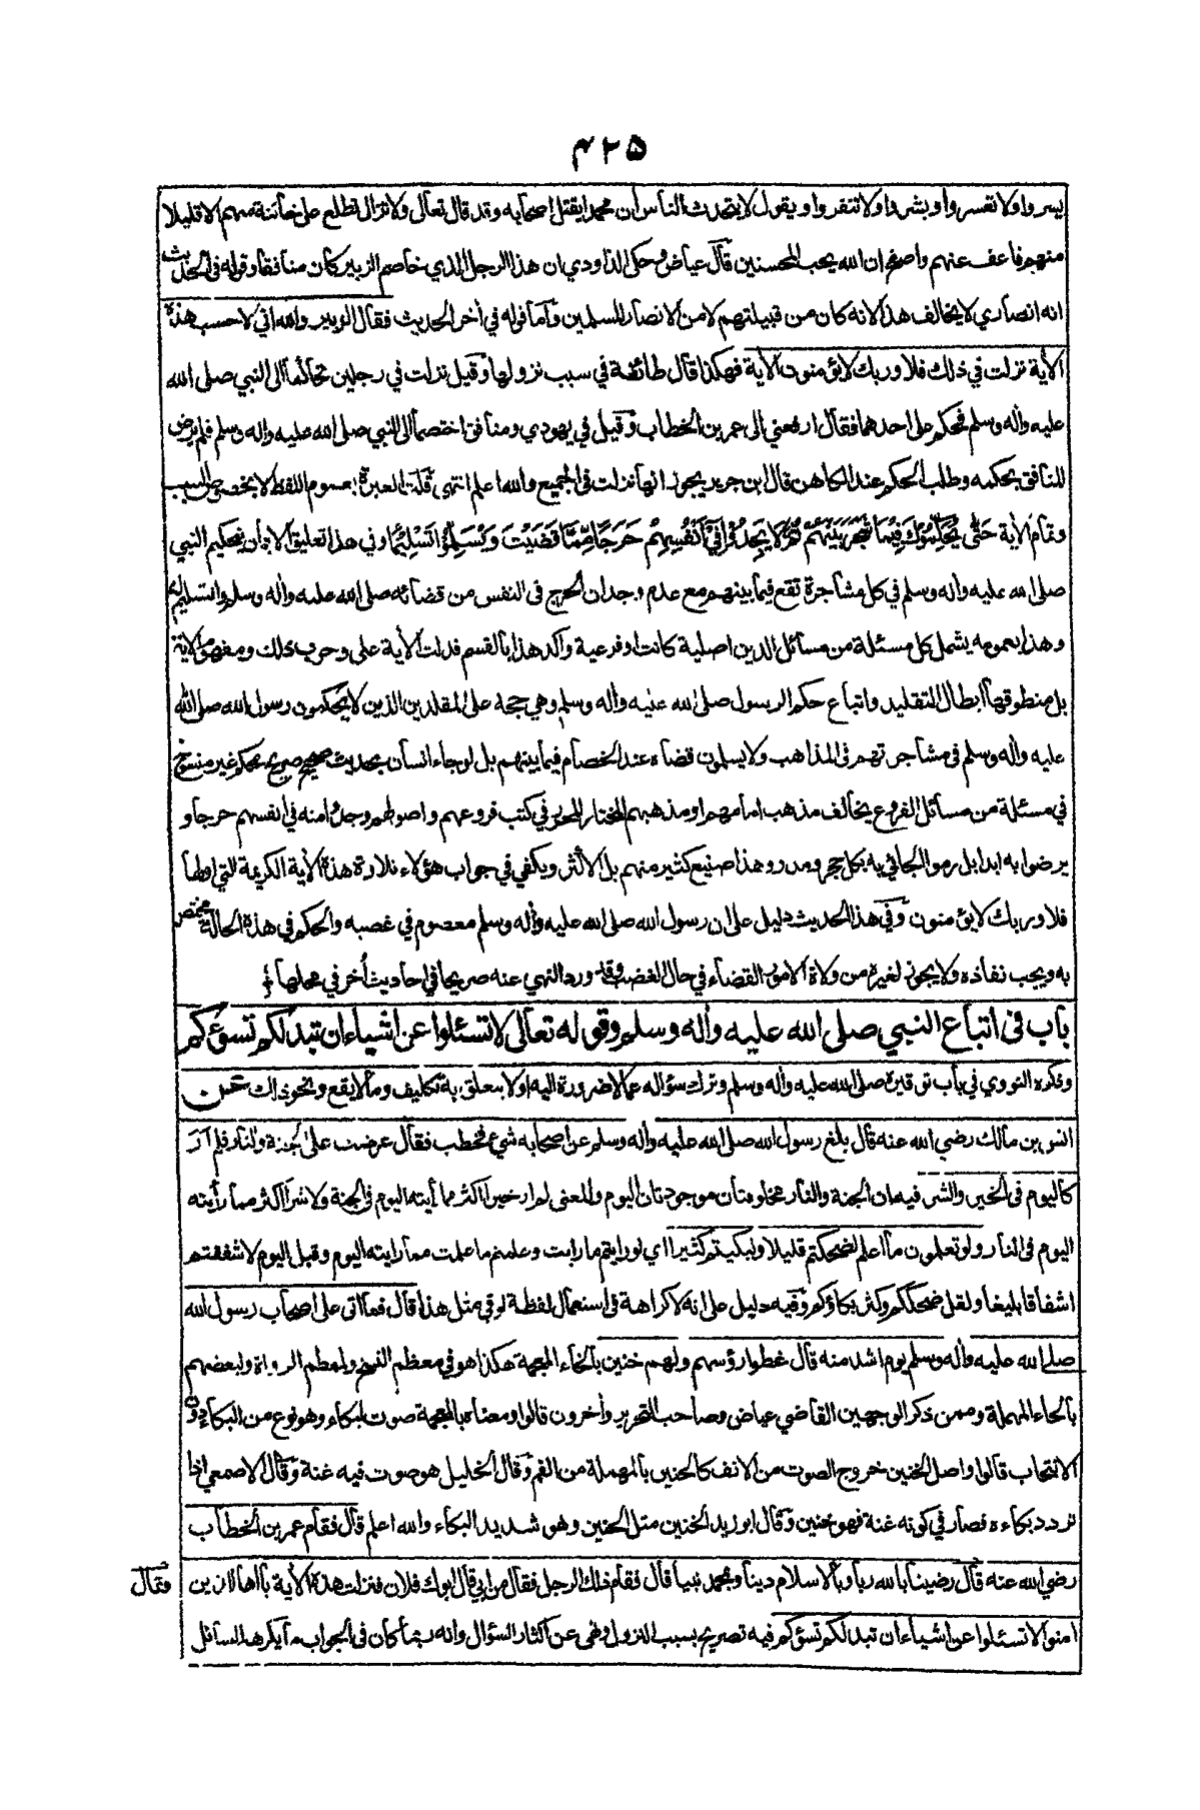 ۴۲۵
يسروا ولا تعسروا وبشروا ولا تنفروا ويقول لا يتحدث الناس ان محمدا يقتل اصحابه وقد قال تعالى ولا تزال تطلع على خائنة منهم الا قليلا
منهم فاعف عنهم واصفح ان الله يحب المحسنين قال عياض وحكى الداودي ان هذا الرجل الذي خاصم الزبير كان منافقا وقوله في الحديث
انه انصاري لا يخالف هذا لانه كان من قبيلتهم لا من الانصار المسلمين وأما قوله في أخر الحديث فقال الزبير والله اني لاحسب هذه
الأية نزلت في ذلك فلا وربك لا يؤمنون الأية فهكذا قال طائفة في سبب نزولها وقيل نزلت في رجلين تحاكما الى النبي صلى الله
عليه وأله وسلم فحكم على احدهما فقال ارفعني الى عمر بن الخطاب وقيل في يهودي ومنافق اختصما الى النبي صلى الله عليه واله وسلم فلم يرض
المنافق بحكمه وطلب الحكم عند الكاهن قال ابن جرير يجوز انها نزلت في الجميع والله اعلم انتهى قلت العبرة بعموم اللفظ لا بخصوص السبب
وتمام الأية حَتّٰى يُحَكِّمُوْكَ فِيْمَا شَجَرَ بَيْنَهُمْ ثُمَّ لَا يَجِدُوْا فِيْ اَنْفُسِهِمْ حَرَجًا مِّمَّا قَضَيْتَ وَيُسَلِّمُوْا تَسْلِيْمًا وفي هذا تعليق الايمان بتحكيم النبي
صلى الله عليه وأله وسلم في كل مشاجرة تقع فيما بينهم مع عدم وجدان الحرج في النفس من قضائه صلى الله عليه واله وسلم والتسليم له
وهذا بعمومه يشمل كل مسئلة من مسائل الدين اصلية كانت او فرعية وأكد هذا بالقسم فدلت الأية على وجوب ذلك ومفهوم الأية
بل منطوقها ابطال للتقليد واتباع حكم الرسول صلى الله عليه وأله وسلم وهي حجة على المقلدين الذين لا يحكمون رسول الله صلى الله
عليه وأله وسلم في مشاجرتهم في المذاهب ولا يسلمون قضاءه عند الخصام فيما بينهم بل لو جاء انسان بحديث صحيح صريح محكم غير منسوخ
في مسئلة من مسائل الفروع يخالف مذهب امامهم او مذهبهم المختار المحرر في كتب فروعهم واصولهم وجدوا منه في انفسهم حرجا و
يرضوا به ابدا بل رموا الجائي به بكل حجر ومدر وهذا صنيع كثير منهم بل الاكثر ويكفي في جواب هؤلاء تلاوة هذه الأية الكريمة التي اولها
فلا وربك لا يؤمنون وفي هذا الحديث دليل على ان رسول الله صلى الله عليه وأله وسلم معصوم في غضبه والحكم في هذه الحالة مختص
به ويجب نفاذه ولا يجوز لغيره من ولاة الامور القضاء في حال الغضب وقد ورد النهي عنه صريحا في احاديث أخر في محلها
باب في اتباع النبي صلى الله عليه وأله وسلم وقوله تعالى لا تسئلوا عن اشياء ان تبد لكم تسؤكم
وذكره النووي في باب توقيره صلى الله عليه واله وسلم وترك سؤاله عما لا ضرورة اليه او لا يتعلق به تكليف وما لا يقع ونحو ذلك عن
انس بن مالك رضي الله عنه قال بلغ رسول الله صلى الله عليه واله وسلم عن اصحابه شيء فخطب فقال عرضت علي الجنة والنار فلم أر
كاليوم في الخير والشر فيه ان الجنة والنار مخلوقتان موجودتان اليوم والمعنى لم ار خيرا اكثر مما رأيته اليوم في الجنة ولا شرا اكثر مما رأيته
اليوم في النار ولو تعلمون ما اعلم لضحكتم قليلا ولبكيتم كثيرا اي لو رايتم ما رايت وعلمتم ما علمت مما رايته اليوم وقبل اليوم لاشفقتم
اشفاقا بليغا ولقل ضحككم وكثر بكاؤكم وفيه دليل على انه لا كراهة في استعمال لفظة لو في مثل هذا قال فما اتى على اصحاب رسول الله
صلى الله عليه وأله وسلم يوم اشد منه قال غطوا رؤسهم ولهم خنين بالخاء المعجمة هكذا هو في معظم النسخ ولمعظم الرواة ولبعضهم
بالحاء المهملة وممن ذكر الوجهين القاضي عياض وصاحب التحرير وأخرون قالوا ومعناه بالمعجمة صوت البكاء وهو نوع من البكاء دون
الانتحاب قالوا واصل الخنين خروج الصوت من الانف كالحنين بالمهملة من الفم وقال الخليل هو صوت فيه غنة وقال الاصمعي اذا
تردد بكاءه فصار في كونه غنة فهو خنين وقال ابو زيد الخنين مثل الحنين وهو شديد البكاء والله اعلم قال فقام عمر بن الخطاب
رضي الله عنه قال رضينا بالله ربا وبالاسلام دينا وبمحمد نبيا قال فقام ذلك الرجل فقال من ابي قال ابوك فلان فنزلت هذه الأية يأايها الذين
وقال
امنوا لا تسئلوا عن اشياء ان تبد لكم تسؤكم فيه تصريح بسبب النزول ونهى عن اكثار السؤال وانه ربما كان في الجواب ما يكرهه السائل